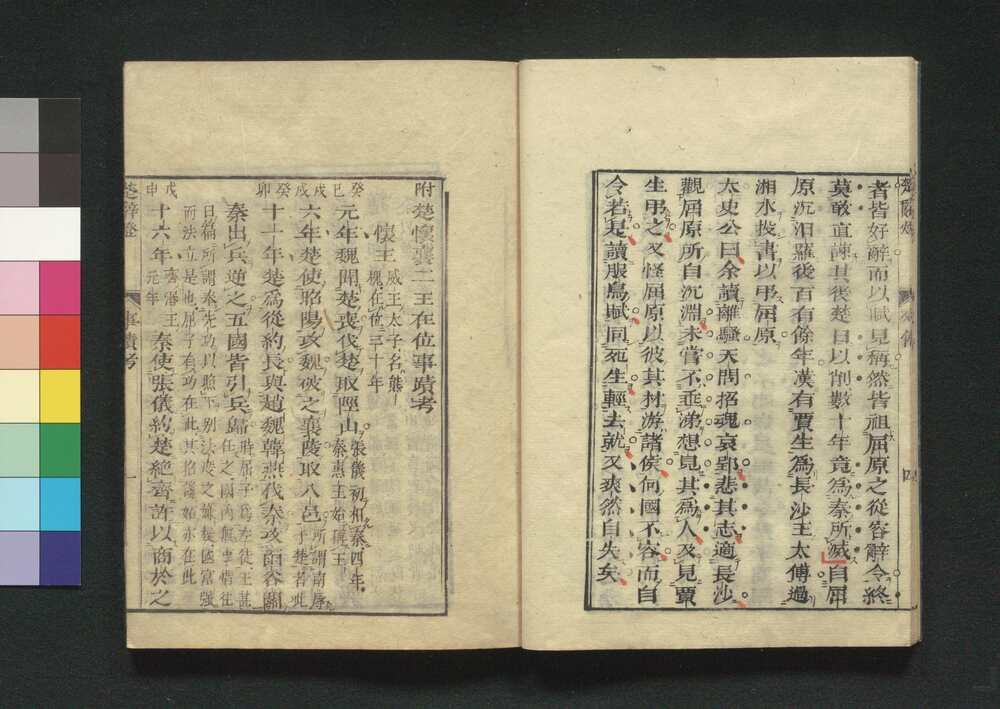 者皆好辭而以賦見稱然皆祖屈原之從容辭令終
莫敢直諫其後楚日以削數十年竟爲秦所滅自屈
原沉汨羅後百有餘年漢有賈生爲長沙王太傅過
湘水投書以弔屈原
太史公曰余讀離騷天問招魂哀郢悲其志適長沙
觀屈原所自沉淵未嘗不垂涕想見其爲人及見賈
生弔之又怪屈原以彼其材游諸侯何國不容而自
令若是讀服鳥賦同死生輕去就又爽然自失矣
附楚懷襄二王在位事蹟考
懷王 威王太子名熊
槐在位三十年
癸巳
元年魏聞楚喪伐楚取陘山 張儀初相秦四年
秦惠王始稱王
戊戌
六年楚使昭陽攻魏破之襄陵取八邑 所謂南辱
于楚者此
癸卯
十一年楚爲從約長與趙魏韓燕伐秦攻函谷關
秦出兵逆之五國皆引兵歸 時屈子爲左徒王甚
任之國內無事惜往
日篇所謂奉先功以照下別法度之嫌疑國富強
而法立是也屈子有功在此其招讒妬亦在此
戊申
十六年 秦使張儀約楚絕齊許以商於之
楚辭卷 事蹟考 一